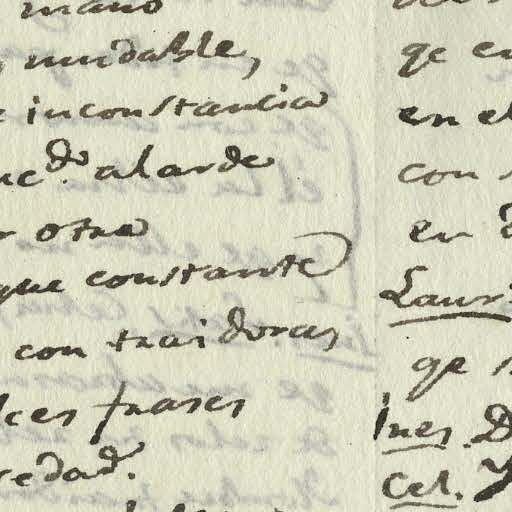 mano
mudable,
inconstancia
alarde
otra
que constante
con traidoras
frases
qe
en el
con
en
Laur
qe
Ines. D
Cel.